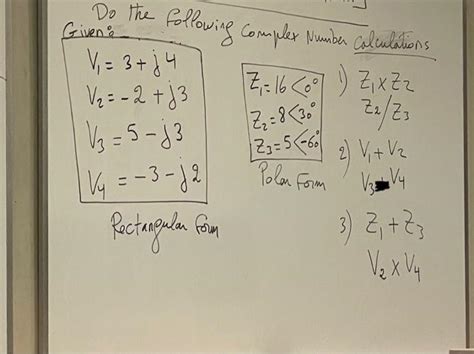 Do the Following Complex Number Calculations
Given:
V1 = 3 + j4
V2 = -2 + j3
V3 = 5 - j3
V4 = -3 - j2
Rectangular Form
Z1 = 16 <0°
Z2 = 8 <30°
Z3 = 5 <-60°
Polar Form
1) Z1 x Z2
Z2/Z3
2) V1 + V2
V3 V4
3) Z1 + Z3
V2 x V4